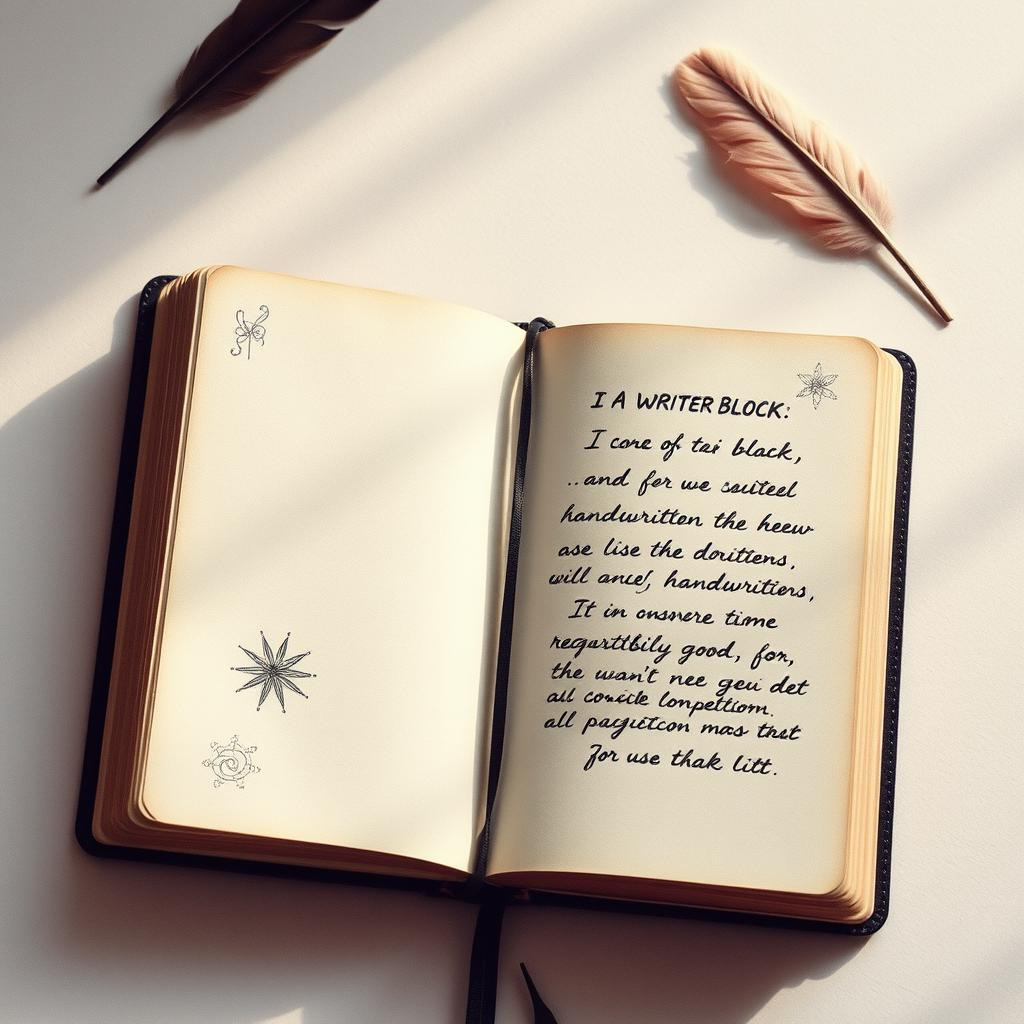 I A WRITER BLOCK:
I core of tai black,
..and for we suiteel
handwritten the heew
ase lise the doritiens,
will anuej, handwritiers,
It in onsnere time
regarttbily good, for,
the wan't nee geui det
all conicle lonpettiom.
all paygitcon mas that
For use thak litt.